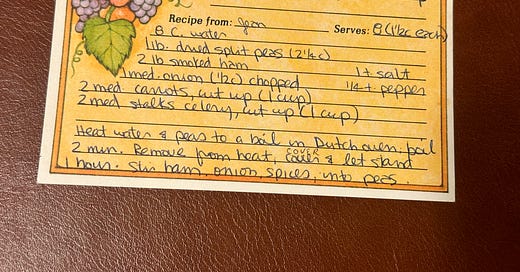 Recipe from: Jean Serves: 8 (1½c each)
8 C. water
1lb. dried split peas (2¼c)
2 lb smoked ham 1 t salt
1 med. onion (½c) chopped ¼ t pepper
2 med. carrots, cut up (1 cup)
2 med stalks celery, cut up (1 cup)
Heat water & peas to a boil in Dutch oven. boil
2 min. Remove from heat, cover COVER & let stand
1 hour. Stir ham, onion, spices, into peas.